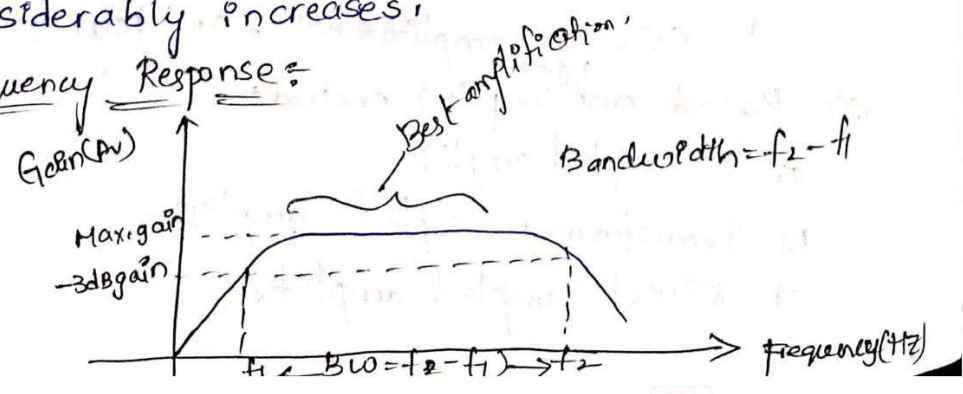 siderably increases.
uency Response:
Best amplification.
Gain(Av)
Bandwidth=f2-f1
Max.gain
-3dBgain
f1 BW=f2-f1 f2
Frequency(Hz)